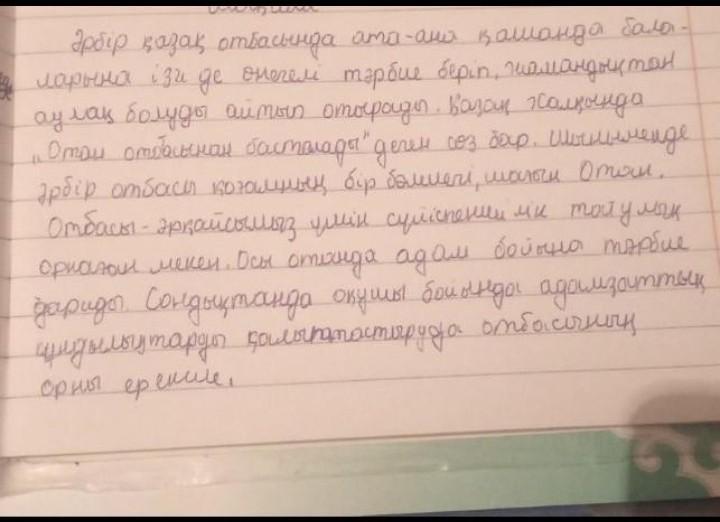 Әрбір қазақ отбасында ата-ана қашанда бала-
ларына ізгі де өнегелі тәрбие беріп, жамандықтан
аулақ болуды айтып отырады. Қазақ халқында
„Отан отбасынан басталады" деген сөз бар. Шыныменде
әрбір отбасы қоғамның бір бөлшегі, шағын Отан.
Отбасы - әрқайсымыз үшін сүйіспеншілік пен
орнаған мекен. Осы отанда адам бойына тәрбие
дариды. Сондықтанда оқушы бойында адамзаттық
құндылықтарды қалыптастыруда отбасының
орны ерекше.